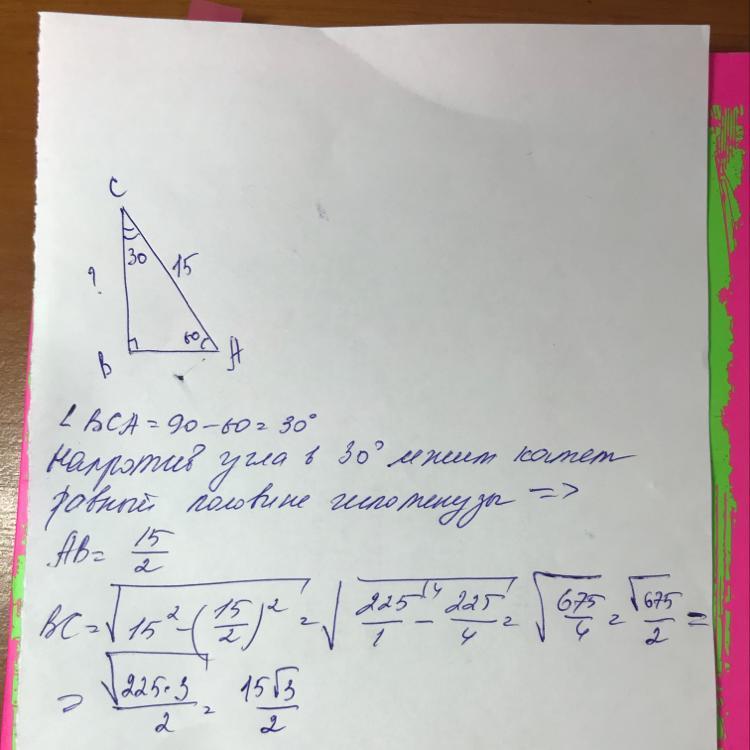 C
30
15
?
60
B
A
∠BCA = 90 - 60 = 30°
Напротив угла в 30° лежит катет
равный половине гипотенузы =>
AB = 15/2
BC = √(15² - (15/2)²) = √(225/1 \4 - 225/4) = √(675/4) = √675/2 =
= √(225·3)/2 = 15√3/2